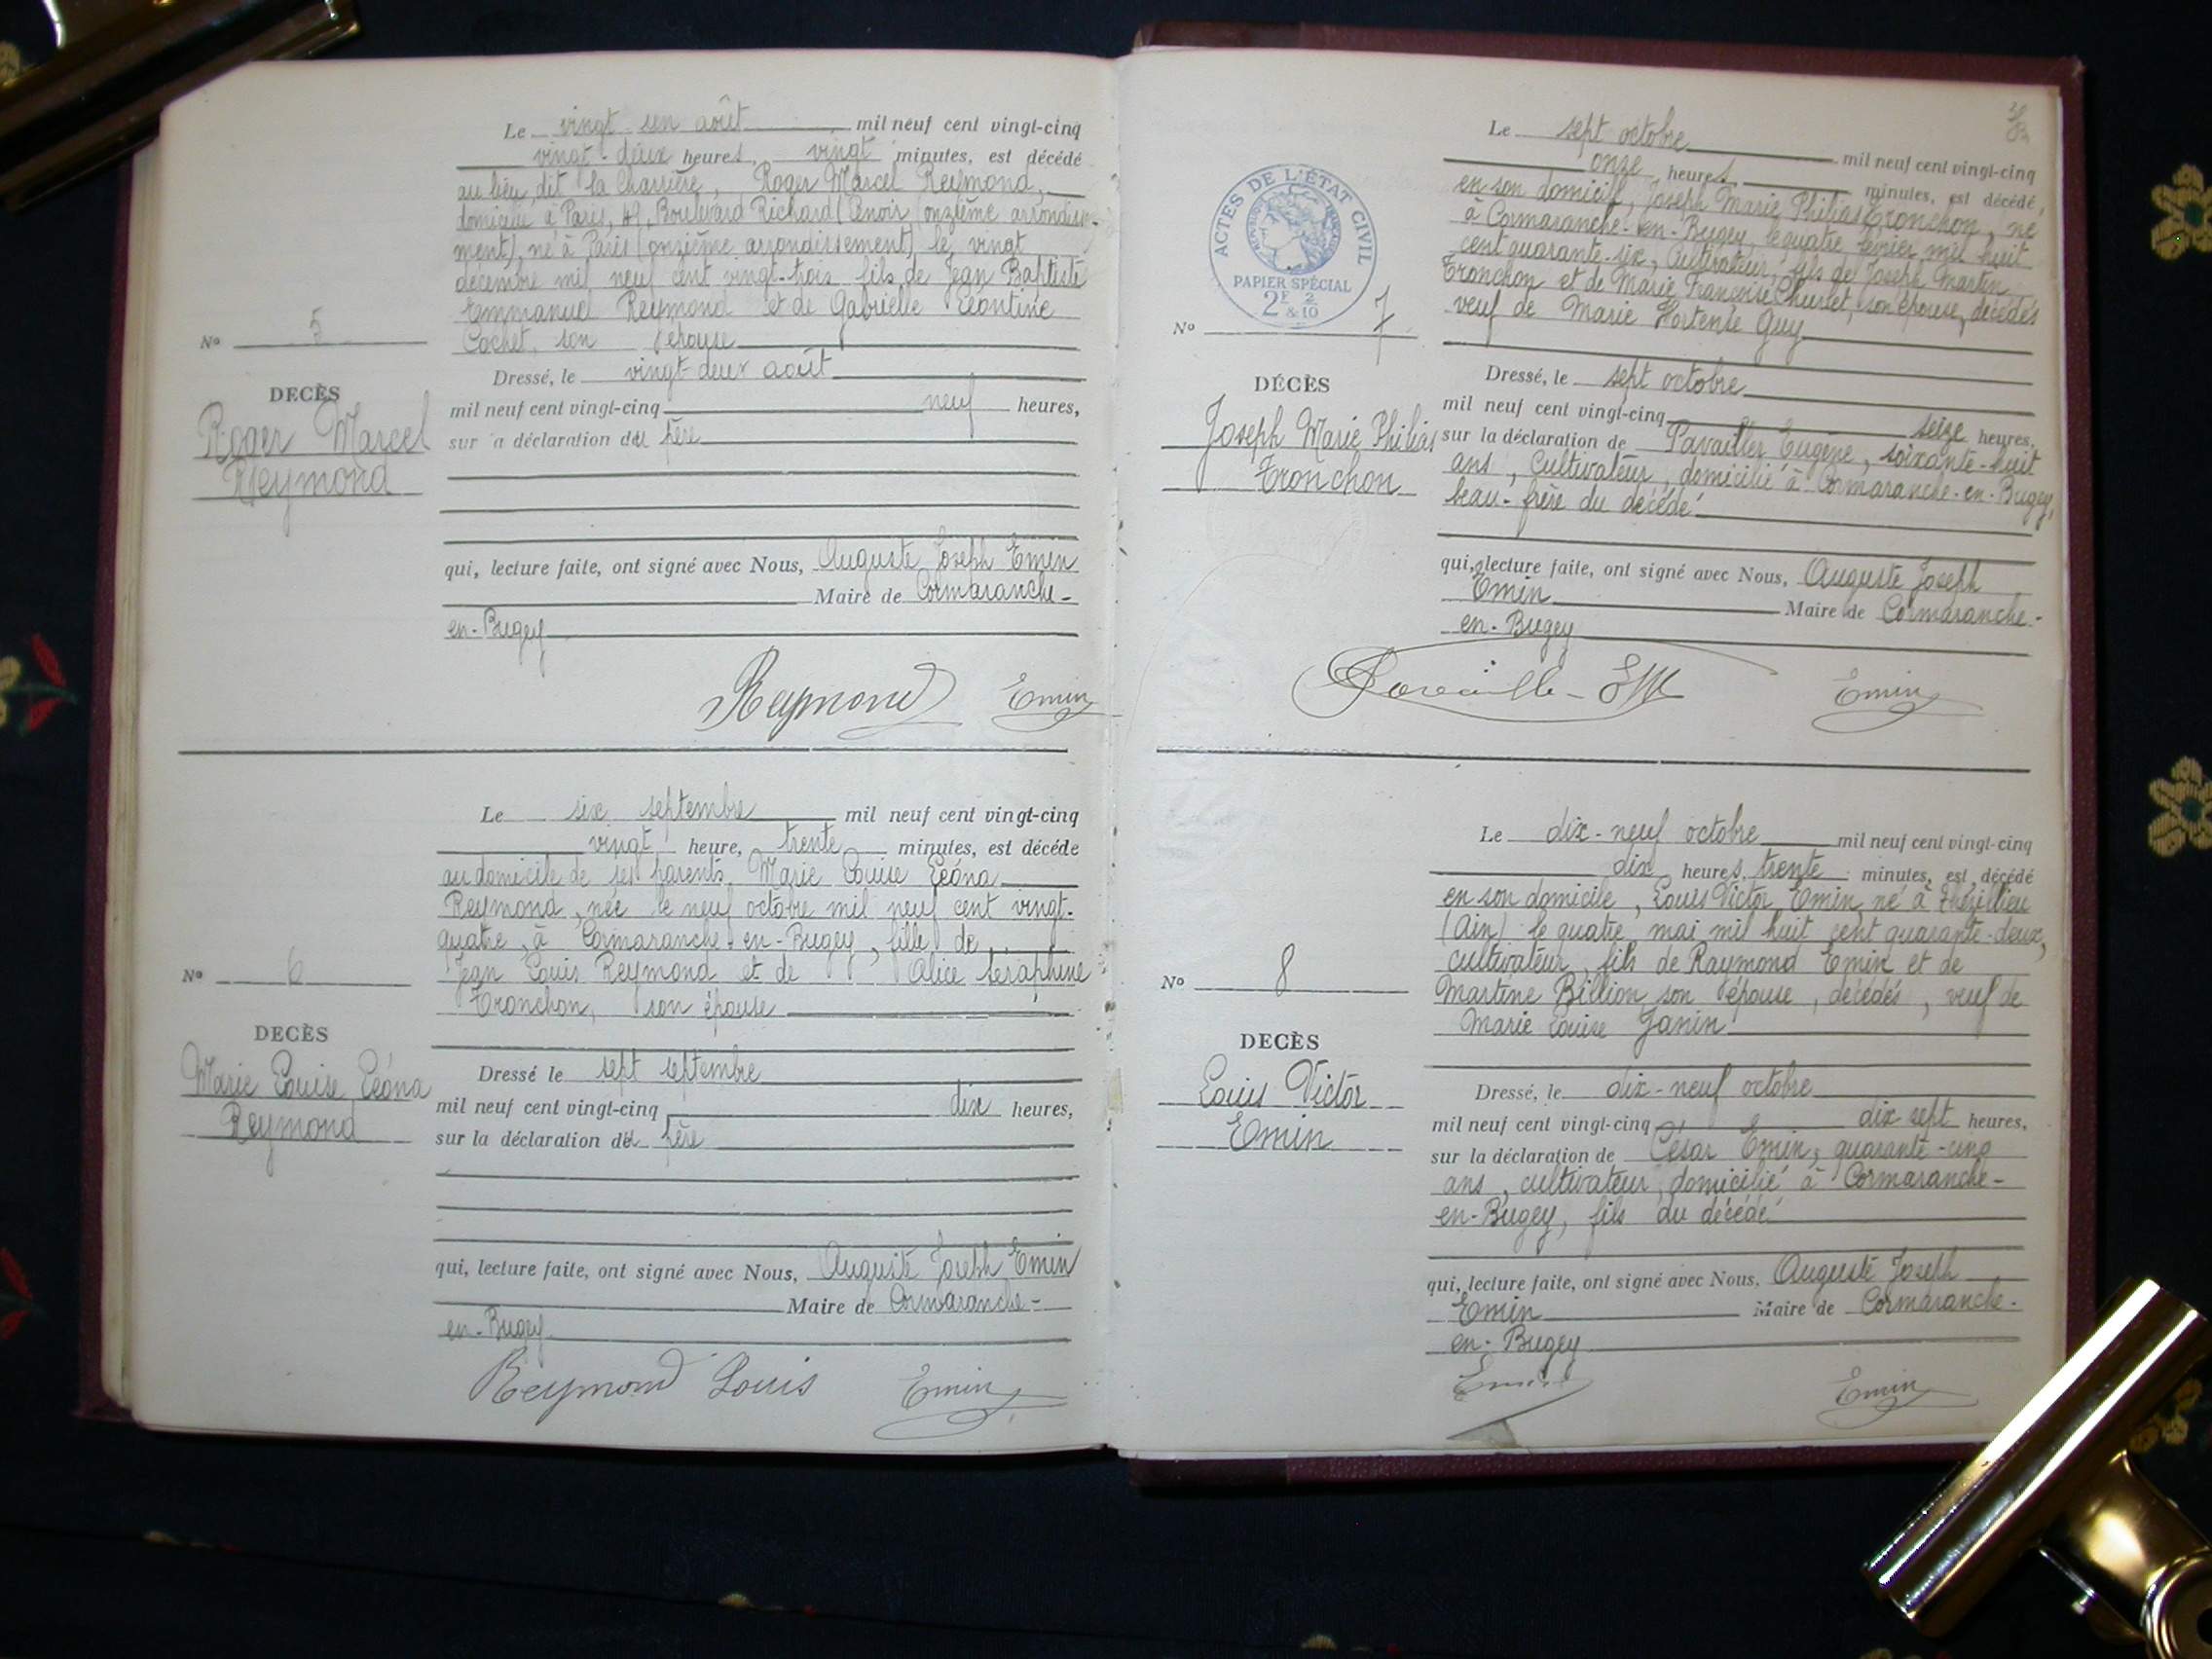 Le vingt-un août mil neuf cent vingt-cinq
vingt-deux heures, vingt minutes, est décédé
au lieu dit la Charrière, Roger Marcel Reymond,
domicilié à Paris, Boulevard Richard Lenoir (onzième arrondisse-
ment), né à Paris (onzième arrondissement) le vingt
décembre mil neuf cent vingt-trois fils de Jean Baptiste
Emmanuel Reymond et de Gabrielle Léontine
Cochet, son épouse
No 5
DECÈS
Roger Marcel
Reymond
Dressé, le vingt-deux août
mil neuf cent vingt-cinq neuf heures,
sur a déclaration du père
qui, lecture faite, ont signé avec Nous, Auguste Joseph Emin
Maire de Cormaranche-
en-Bugey
Reymond Emin
Le six septembre mil neuf cent vingt-cinq
vingt heure, trente minutes, est décédé
au domicile de ses parents, Marie Louise Léona
Reymond, née le neuf octobre mil neuf cent vingt-
quatre, à Cormaranche-en-Bugey, fille de
Jean Louis Reymond et de Alice Séraphine
Tronchon, son épouse
No 6
DECÈS
Marie Louise Léona
Reymond
Dressé le sept septembre
mil neuf cent vingt-cinq dix heures,
sur la déclaration du père
qui, lecture faite, ont signé avec Nous, Auguste Joseph Emin
Maire de Cormaranche-
en-Bugey
Reymond Louis Emin
Le sept octobre mil neuf cent vingt-cinq
onze heures, minutes, est décédé,
en son domicile, Joseph Marie Philias Tronchon, né
à Cormaranche-en-Bugey, le quatre février mil huit
cent quarante-six, Cultivateur, fils de Joseph Martin
Tronchon et de Marie Françoise Churlet, son épouse, décédés
veuf de Marie Hortense Guy
ACTES DE L'ÉTAT CIVIL
PAPIER SPÉCIAL
2F 2 & 10
No 7
DÉCÈS
Joseph Marie Philias
Tronchon
Dressé, le sept octobre
mil neuf cent vingt-cinq seize heures,
sur la déclaration de Pavailler Eugène, soixante-huit
ans, Cultivateur, domicilié à Cormaranche-en-Bugey,
beau-frère du décédé
qui, lecture faite, ont signé avec Nous, Auguste Joseph
Emin Maire de Cormaranche-
en-Bugey
Emin
Le dix-neuf octobre mil neuf cent vingt-cinq
dix heures, trente minutes, est décédé
en son domicile, Louis Victor Emin, né à Thézillieu
(Ain) le quatre mai mil huit cent quarante-deux,
cultivateur, fils de Raymond Emin et de
Martine Billion son épouse, décédés, veuf de
Marie Louise Janin
No 8
DECÈS
Louis Victor
Emin
Dressé, le dix-neuf octobre
mil neuf cent vingt-cinq dix sept heures,
sur la déclaration de César Emin, quarante-cinq
ans, cultivateur, domicilié à Cormaranche-
en-Bugey, fils du décédé
qui, lecture faite, ont signé avec Nous, Auguste Joseph
Emin Maire de Cormaranche-
en-Bugey
Emin Emin